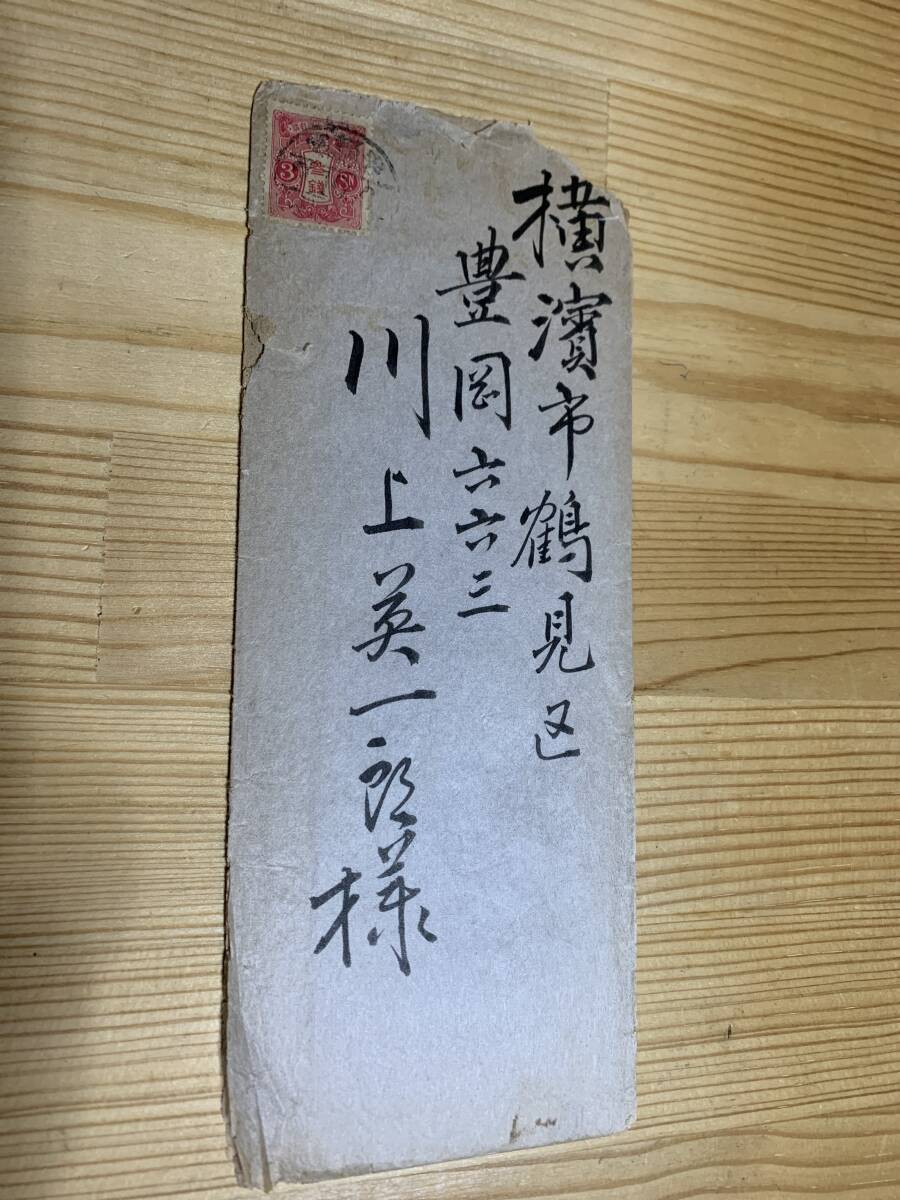 横濱市鶴見区
豊岡六六三
川上英一郎様
3
参錢
SN